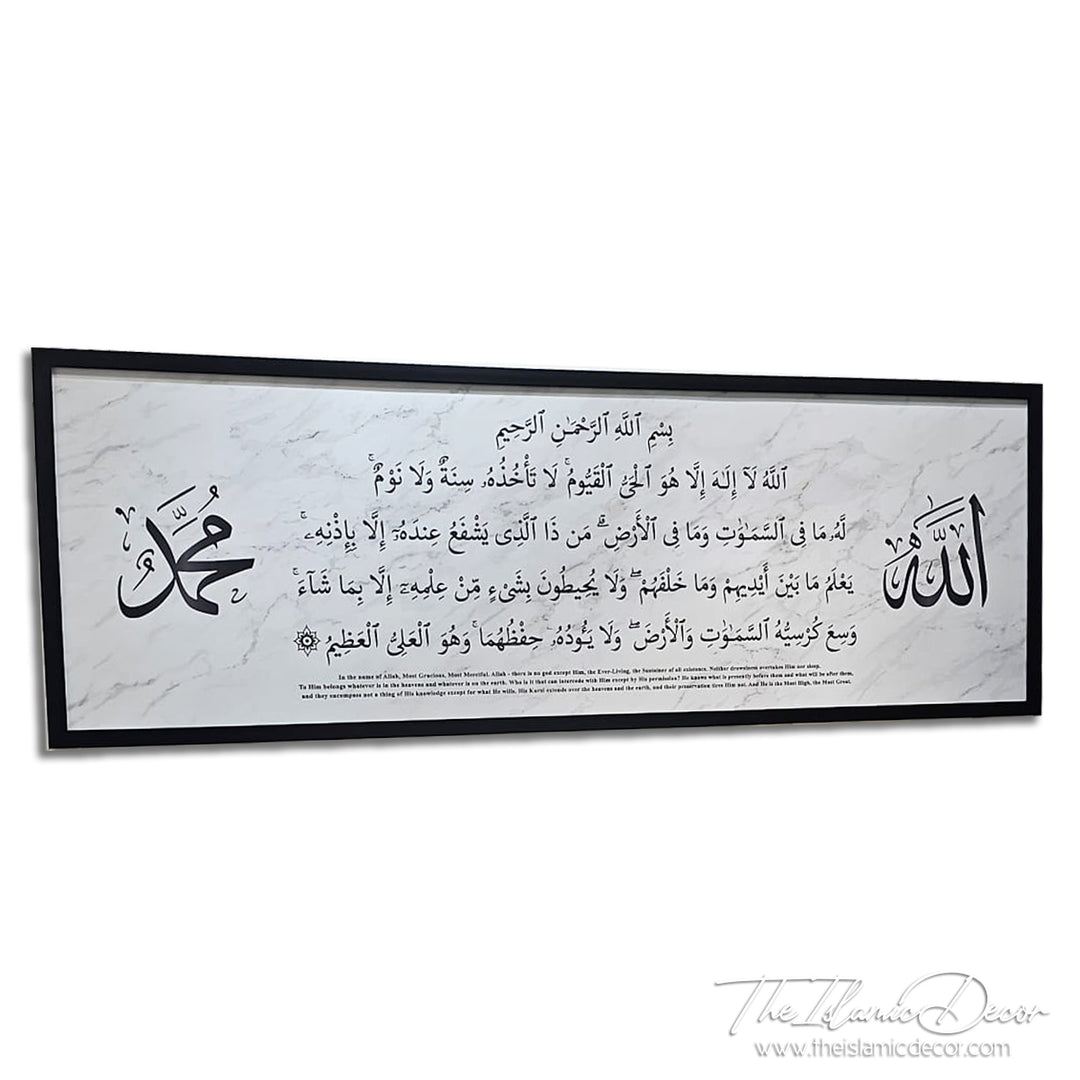 بِسْمِ ٱللَّهِ ٱلرَّحْمَـٰنِ ٱلرَّحِيمِ
ٱللَّهُ لَآ إِلَـٰهَ إِلَّا هُوَ ٱلْحَىُّ ٱلْقَيُّومُ ۚ لَا تَأْخُذُهُۥ سِنَةٌ وَلَا نَوْمٌ ۚ
لَّهُۥ مَا فِى ٱلسَّمَـٰوَٰتِ وَمَا فِى ٱلْأَرْضِ ۗ مَن ذَا ٱلَّذِى يَشْفَعُ عِندَهُۥٓ إِلَّا بِإِذْنِهِۦ ۚ
يَعْلَمُ مَا بَيْنَ أَيْدِيهِمْ وَمَا خَلْفَهُمْ ۖ وَلَا يُحِيطُونَ بِشَىْءٍ مِّنْ عِلْمِهِۦٓ إِلَّا بِمَا شَآءَ ۚ
وَسِعَ كُرْسِيُّهُ ٱلسَّمَـٰوَٰتِ وَٱلْأَرْضَ ۖ وَلَا يَـُٔودُهُۥ حِفْظُهُمَا ۚ وَهُوَ ٱلْعَلِىُّ ٱلْعَظِيمُ
ٱللَّه
مُحَمَّد
In the name of Allah, Most Gracious, Most Merciful. Allah - there is no god except Him, the Ever-Living, the Sustainer of all existence. Neither drowsiness overtakes Him nor sleep.
To Him belongs whatever is in the heavens and whatever is on the earth. Who is it that can intercede with Him except by His permission? He knows what is presently before them and what will be after them,
and they encompass not a thing of His knowledge except for what He wills. His Kursi extends over the heavens and the earth, and their preservation tires Him not. And He is the Most High, the Most Great.
The Islamic Decor
www.theislamicdecor.com